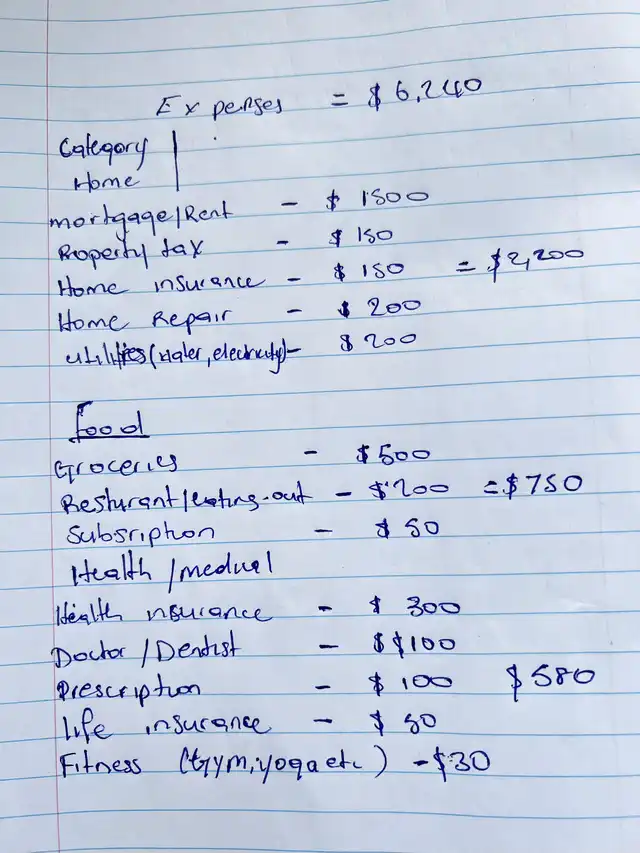 Expenses = $6,240
Category
Home
mortgage/Rent - $1500
Property tax - $150
Home insurance - $150 = $2,200
Home Repair - $200
utilities (water, electricity) - $200
Food
Groceries - $500
Resturant/eating-out - $200 = $750
Subsription - $50
Health/medical
Health insurance - $300
Doctor/Dentist - $$100
Prescription - $100 $580
life insurance - $50
Fitness (Gym, yoga etc) - $30